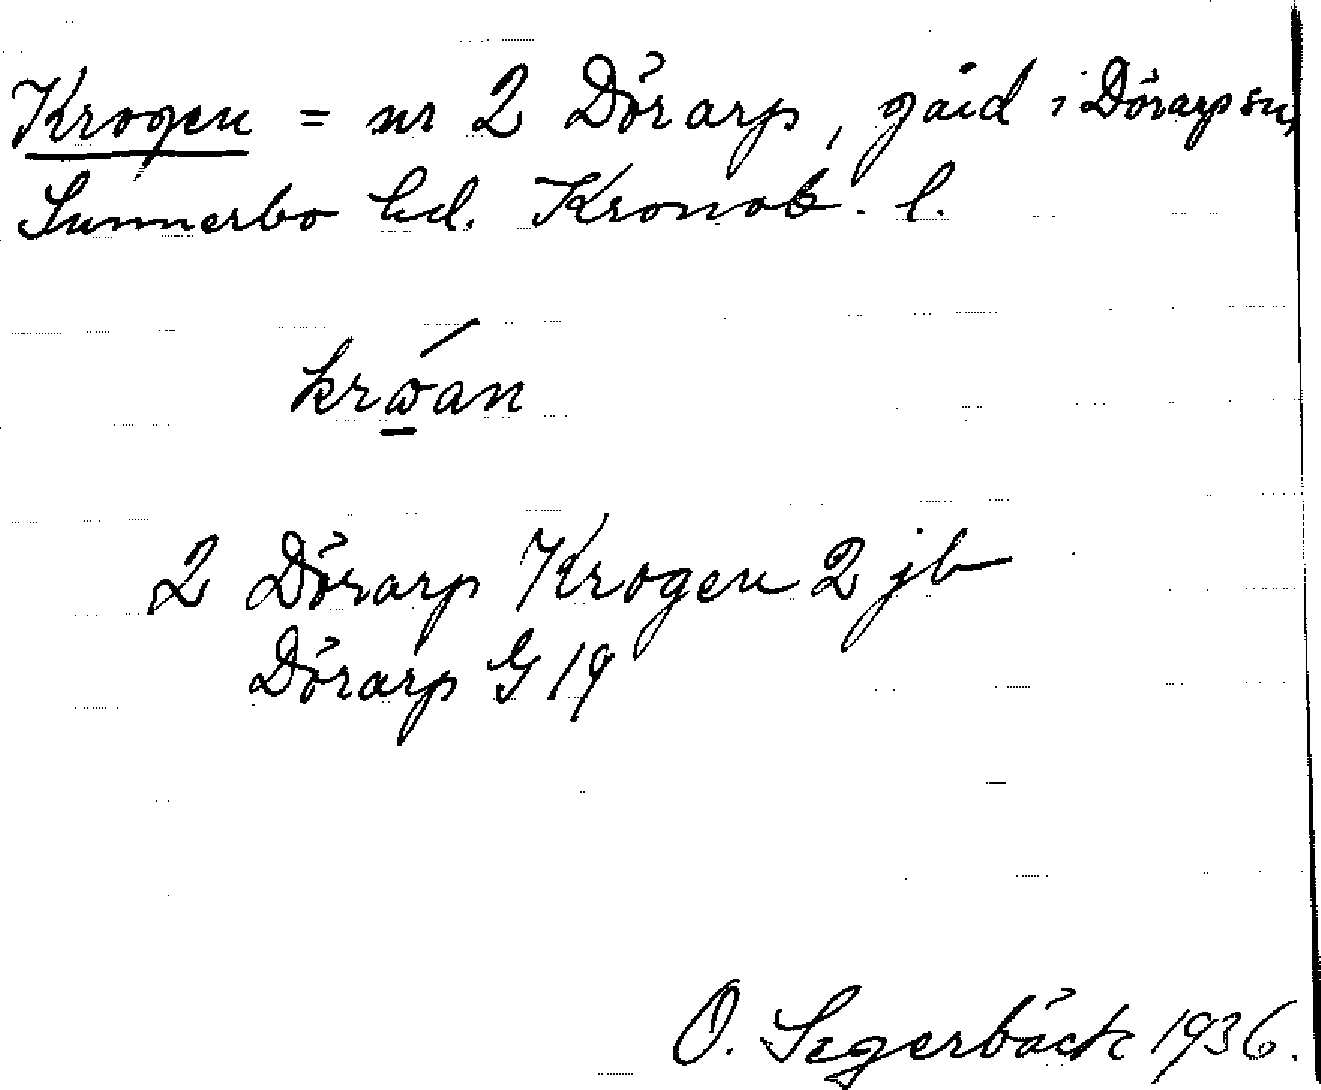 Krogen = nr 2 Dörarp, gård i Dörarp sn,
Sunnerbo hd. Kronob. l.
krɷ́an
2 Dörarp Krogen 2 jb
Dörarp G 19
O. Segerbäck 1936.